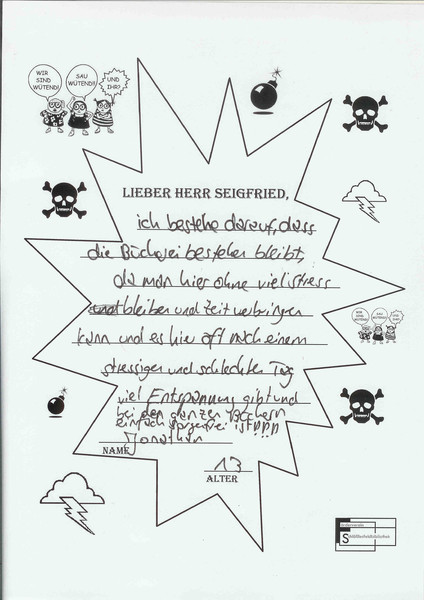 WIR
SIND
WÜTEND!
SAU
WÜTEND!!
UND
IHR?
LIEBER HERR SEIGFRIED,
ich bestehe darauf, dass
die Bücherei bestehen bleibt,
da man hier ohne viel stress
bleiben und Zeit verbringen
kann und es hier oft nach einem
stressigen und schlechten Tag
viel Entspannung gibt und
bei den ganzen Büchern
einfach sorgenfrei ist!!!
Jonathan
NAME
13
ALTER